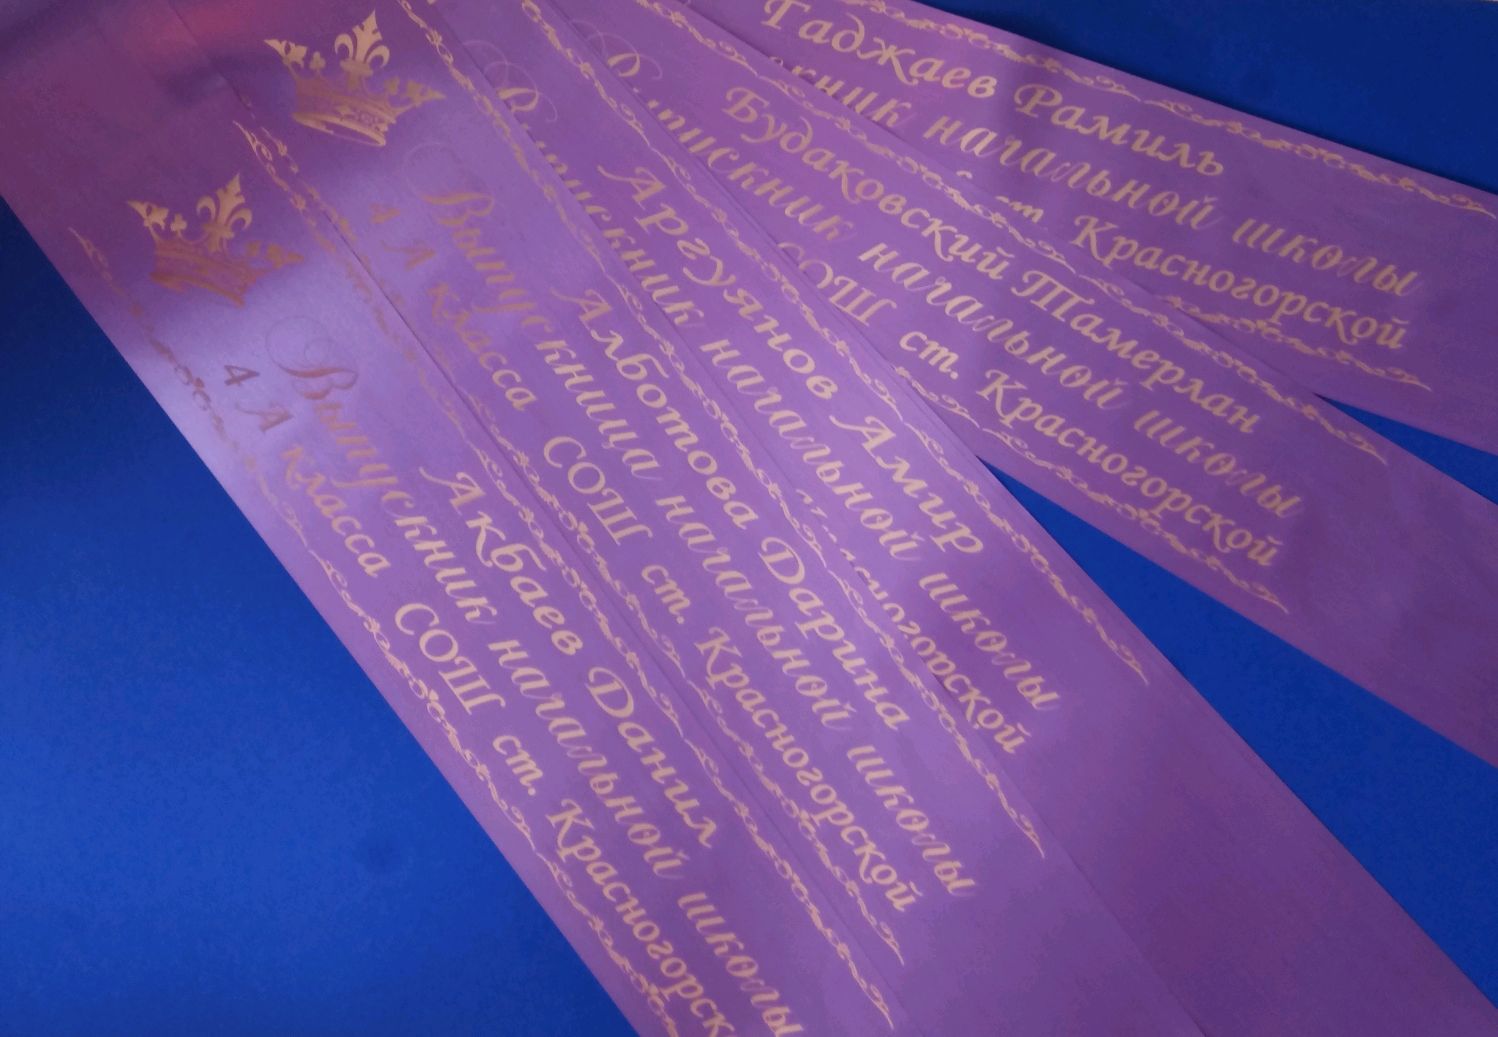 Акбаев Данил
Выпускник начальной школы
4 А класса СОШ ст. Красногорск
Алботова Дарина
Выпускница начальной школы
4 А класса СОШ ст. Красногорской
Аргуянов Амир
Выпускник начальной школы
ногорской
Будаковский Тамерлан
Выпускник начальной школы
СОШ ст. Красногорской
Гаджаев Рамиль
кник начальной школы
ст. Красногорской